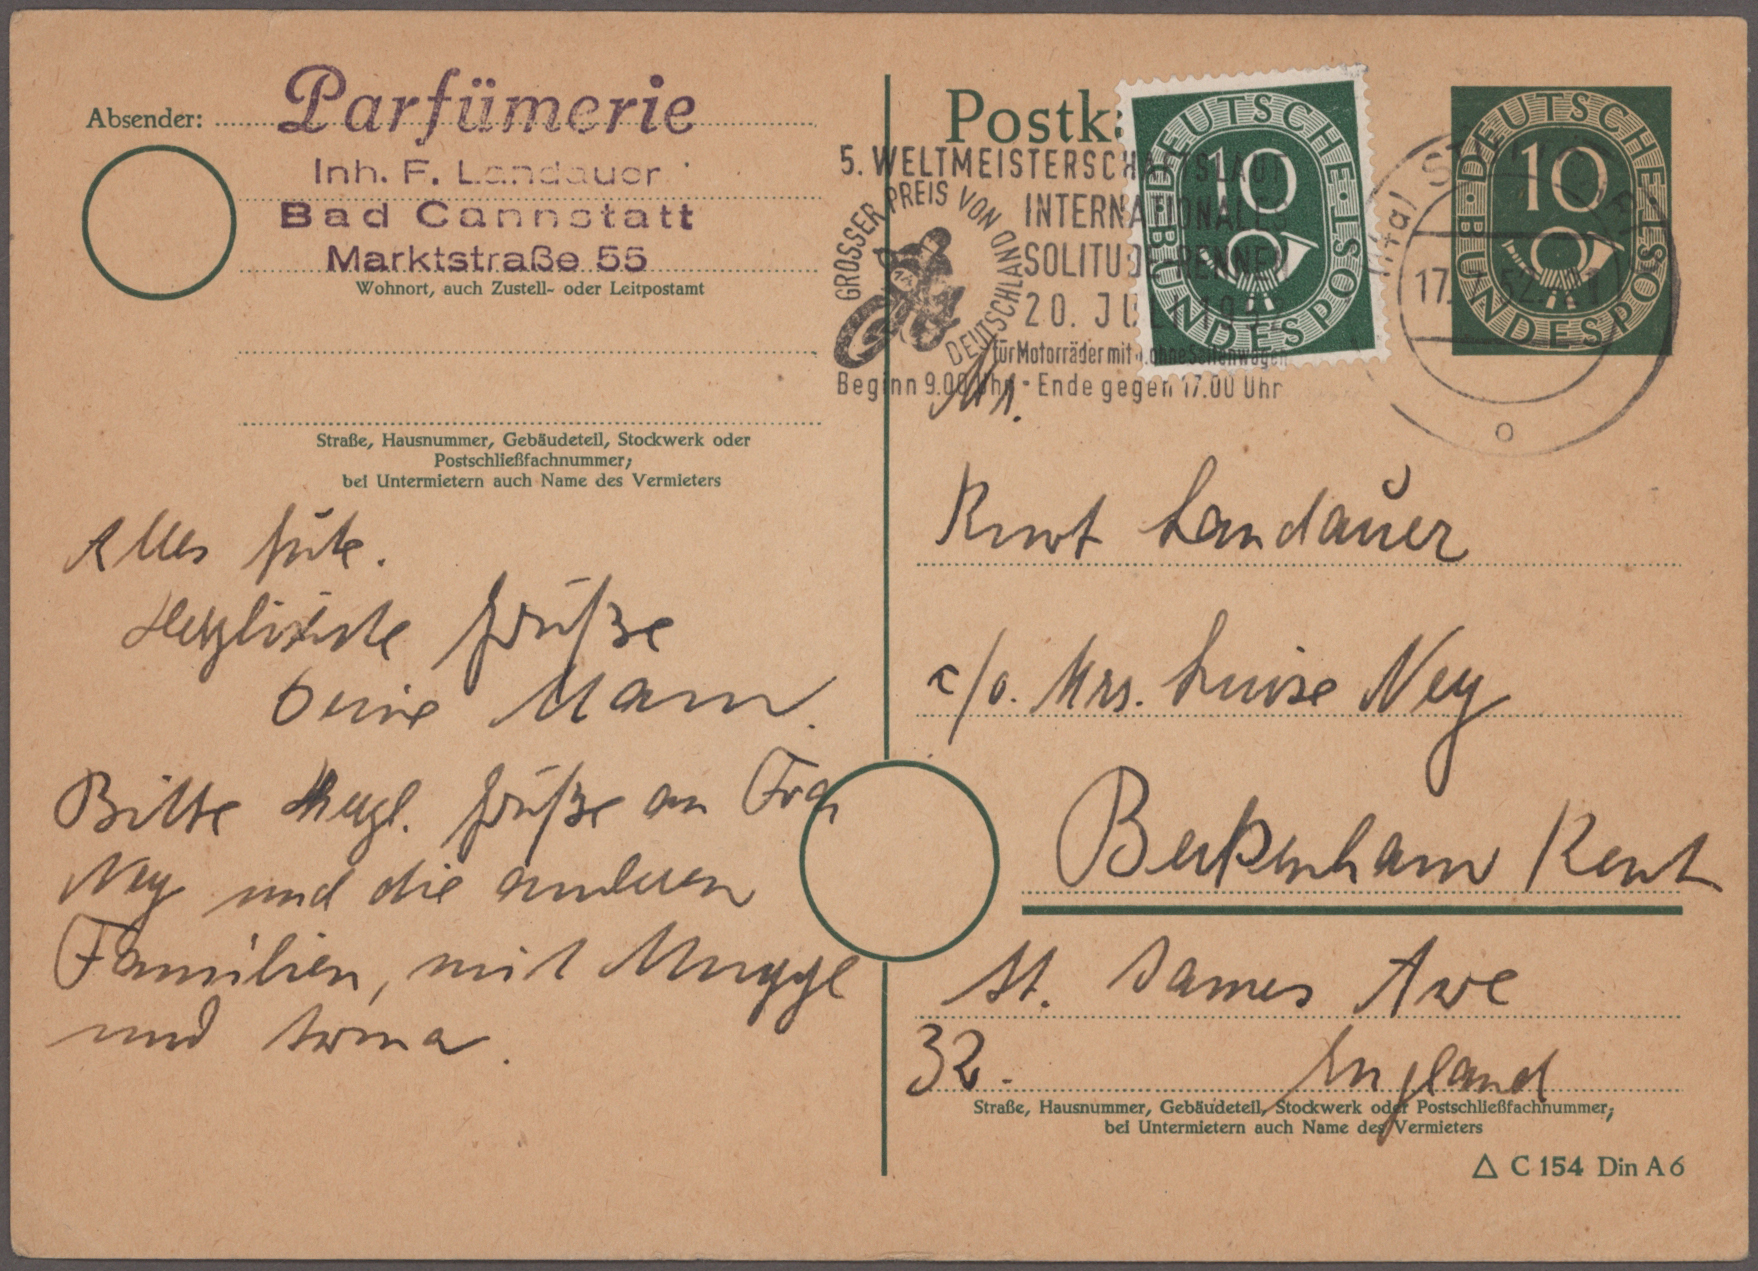 Absender:
Parfümerie
Inh. F. Landauer
Bad Cannstatt
Marktstraße 55
Wohnort, auch Zustell- oder Leitpostamt
Straße, Hausnummer, Gebäudeteil, Stockwerk oder
Postschließfachnummer;
bei Untermietern auch Name des Vermieters
Alles Gute.
Herzlichste Grüße
Deine Mam.
Bitte herzl. Grüße an Frau
Ney und die anderen
Familien, mit Muggl
und Irma.
Postk
5. WELTMEISTERSCHAFTSLAUF
INTERNATIONALES
SOLITUDE-RENNEN
20. JULI 1952
für Motorräder mit u. ohne Seitenwagen
Beginn 9.00 Uhr - Ende gegen 17.00 Uhr
GROSSER PREIS VON DEUTSCHLAND
DEUTSCHE BUNDESPOST
10
DEUTSCHE BUNDESPOST
10
17. 52
Mr.
Kurt Landauer
c/o. Mrs. Luise Ney
Beckenham Kent
St. James Ave
32.
England
Straße, Hausnummer, Gebäudeteil, Stockwerk oder Postschließfachnummer;
bei Untermietern auch Name des Vermieters
△ C 154 Din A 6